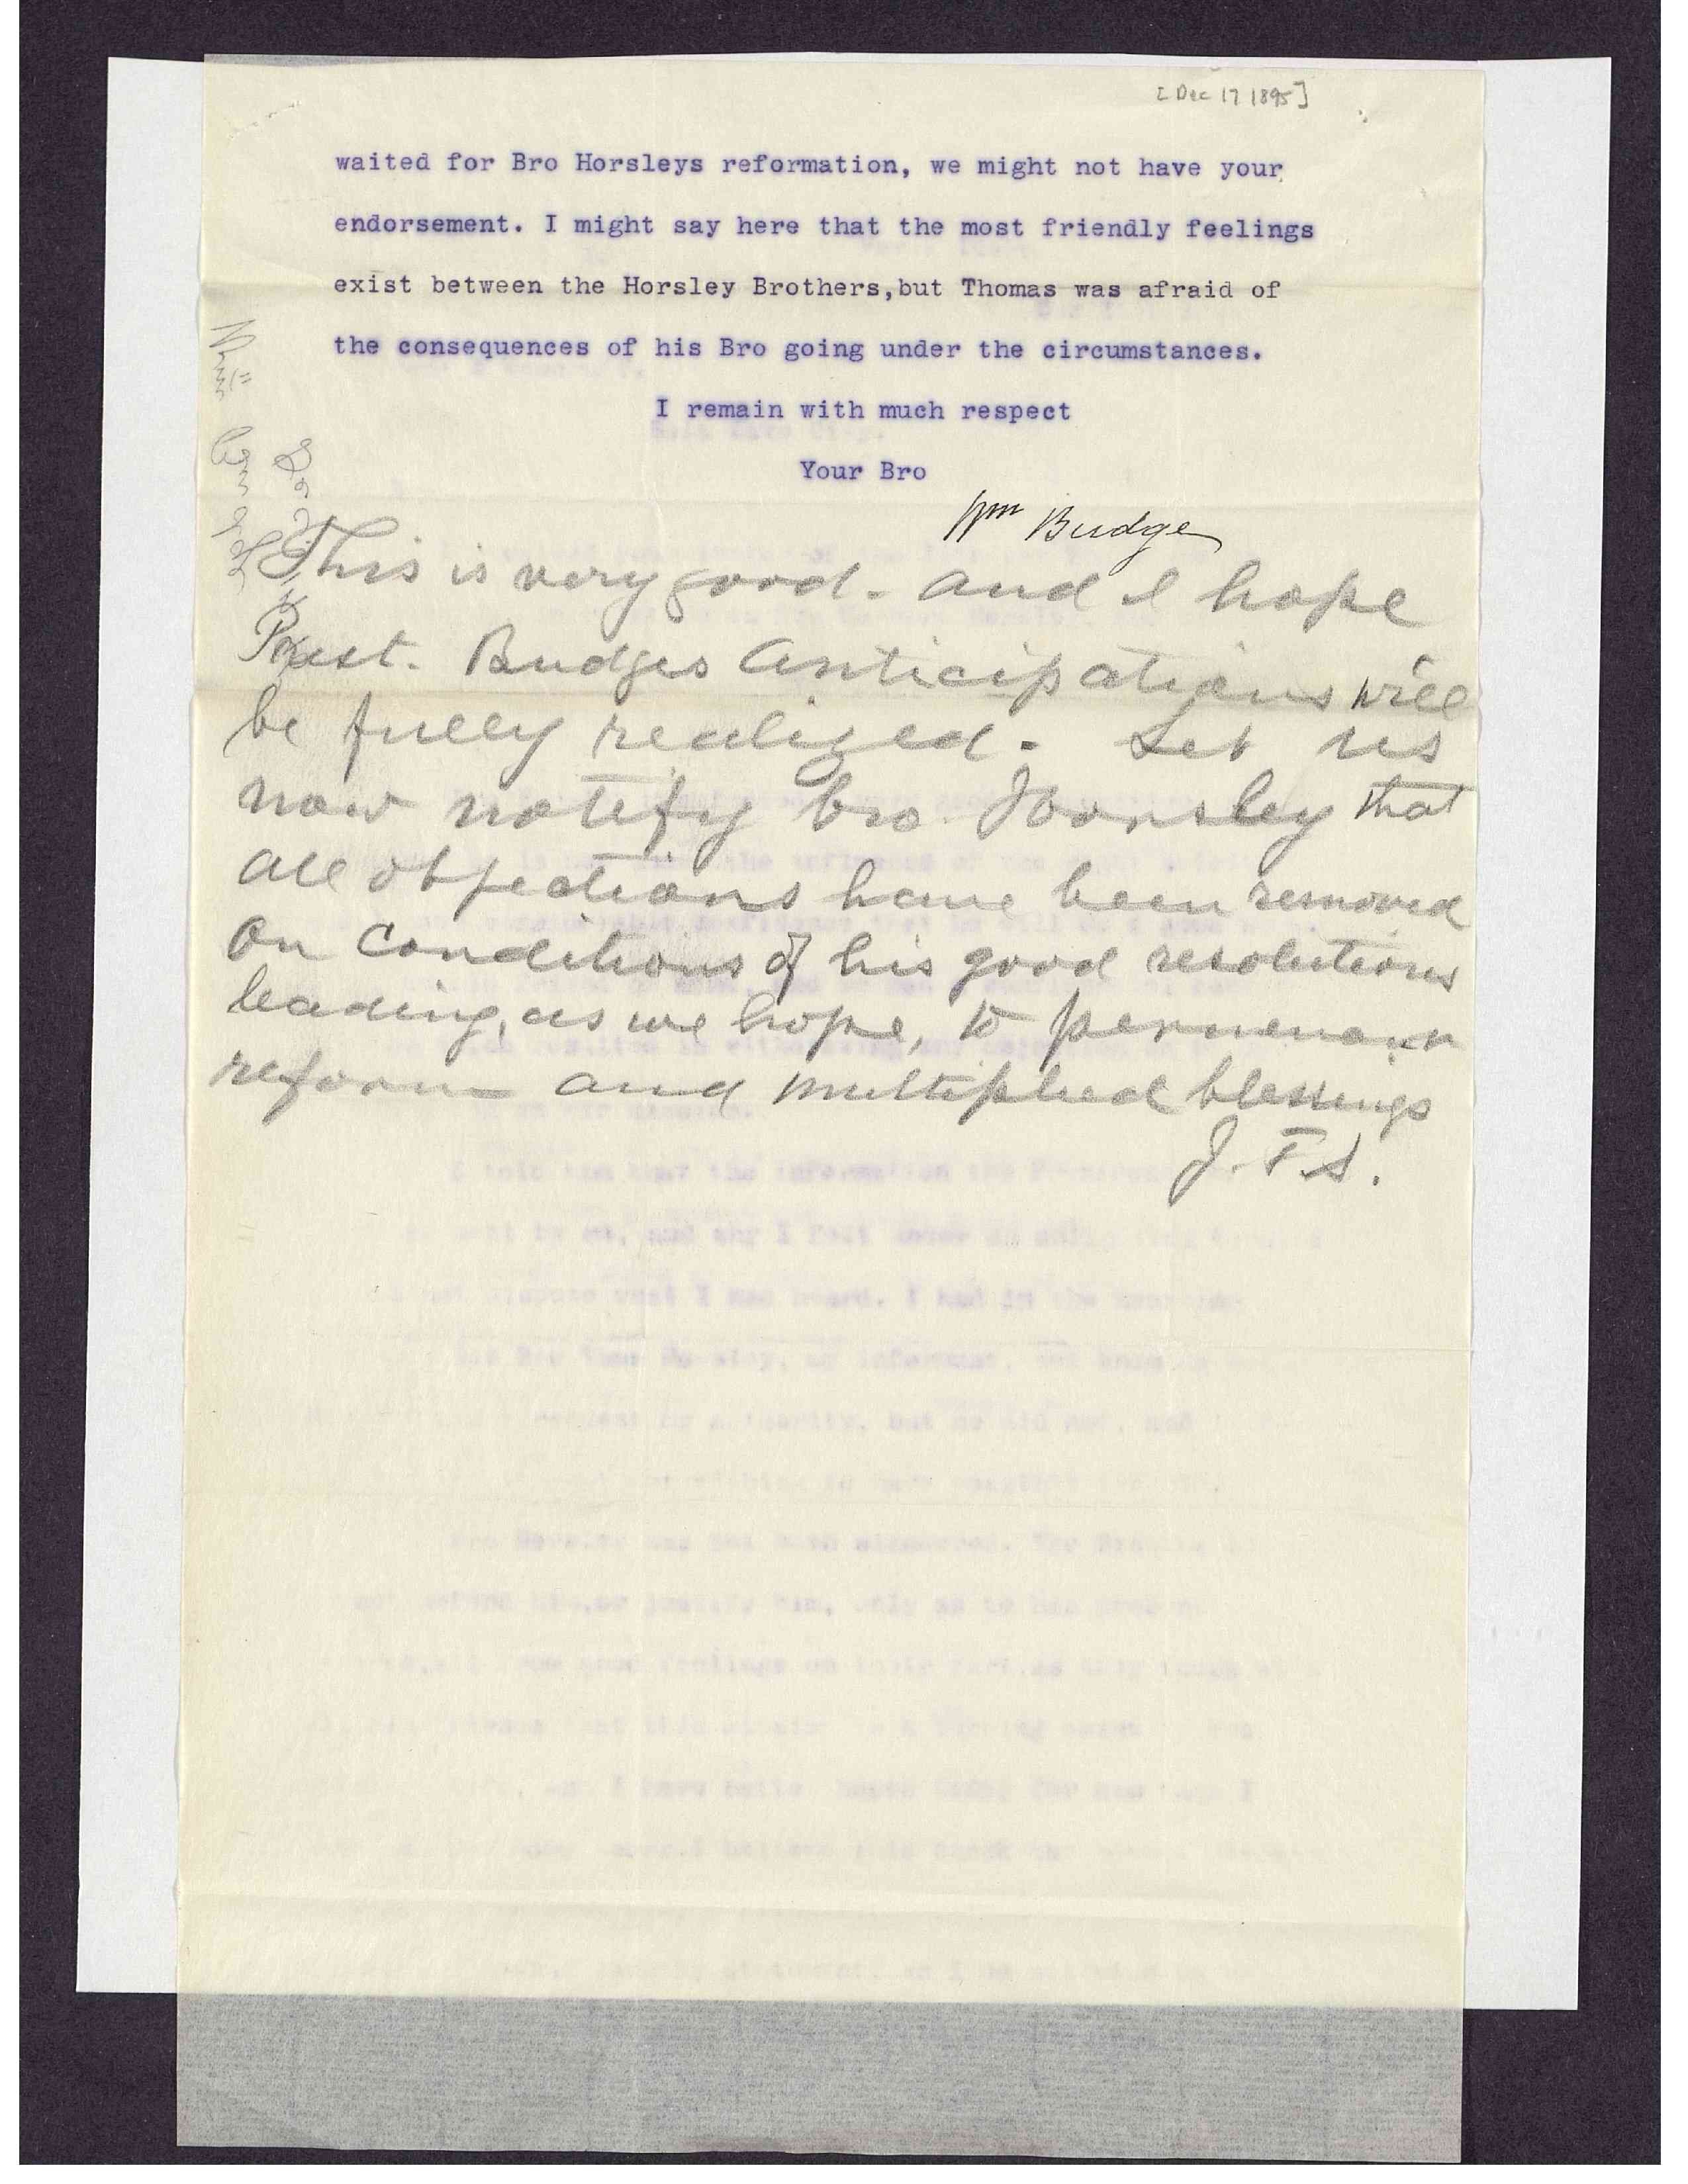 [Dec 17 1895]
waited for Bro Horsleys reformation, we might not have your
endorsement. I might say here that the most friendly feelings
exist between the Horsley Brothers,but Thomas was afraid of
the consequences of his Bro going under the circumstances.
I remain with much respect
Your Bro
Wm Budge
This is very good. and I hope
Prest. Budges anticipations will
be fully realized. Let us
now notify bro Horsley that
all objections have been removed
on conditions of his good resolutions
leading, as we hope, to permenant
reform and multiplied blessings
J. F. S.